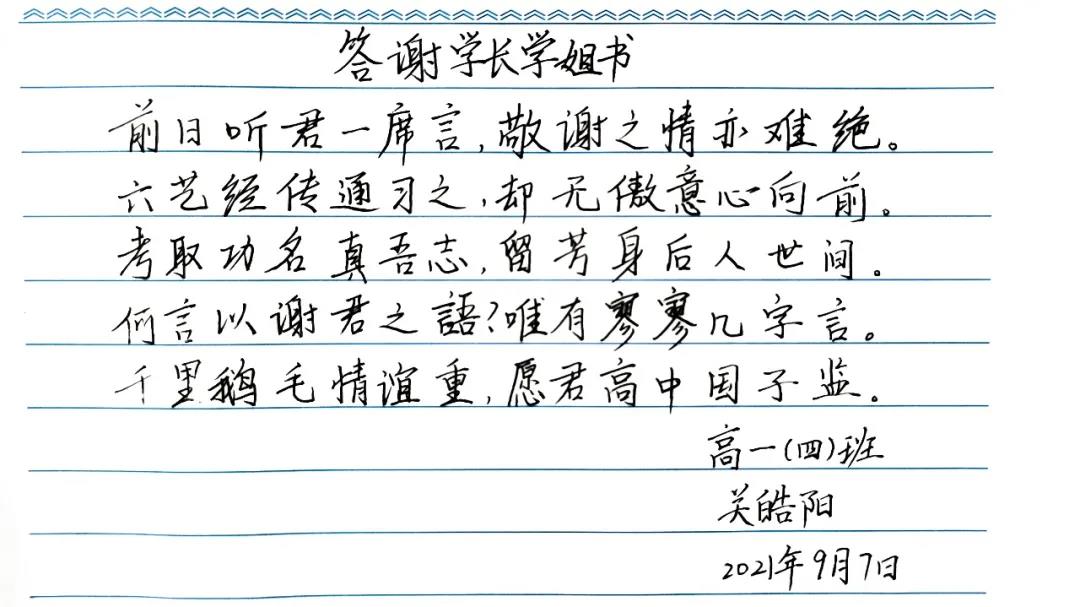 答谢学长学姐书
前日听君一席言,敬谢之情亦难绝。
六艺经传通习之,却无傲意心向前。
考取功名真吾志,留芳身后人世间。
何言以谢君之語?唯有寥寥几字言。
千里鹅毛情谊重,愿君高中国子监。
高一(四)班
关皓阳
2021年9月7日